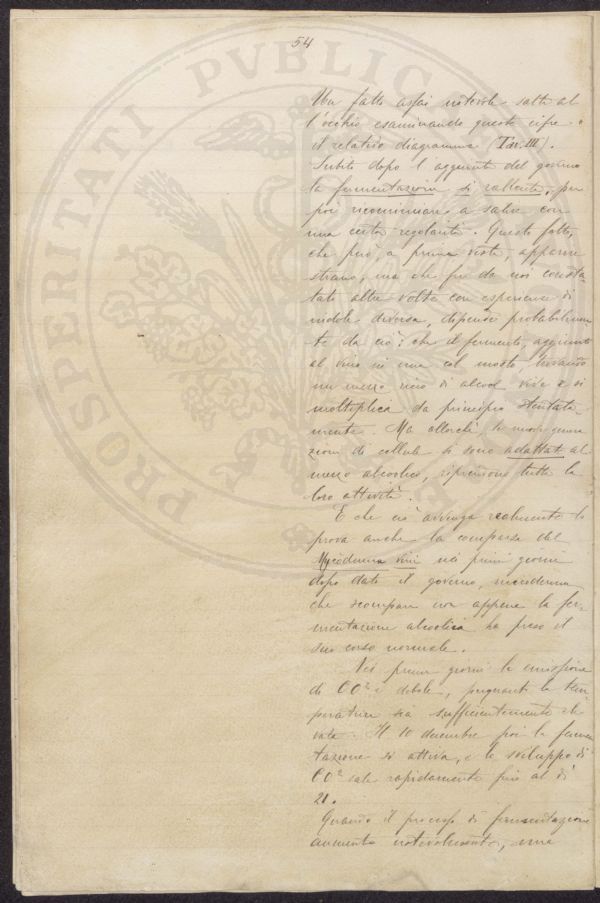 54
Un fatto assai notevole salta al
l'occhio esaminando queste cifre e
il relativo diagramma (Tav. III).
Subito dopo l'aggiunta del governo
la fermentazione si rallenta, per
poi ricominciare a salire con
una certa regolarità. Questo fatto,
che però, a prima vista, apparve
strano, ma che fu da noi consta-
tato altre volte con esperienze di
indole diversa, dipende probabilmen
te da ciò: che il fermento, aggiunto
al vino in una col mosto, trovando
un mezzo ricco di alcool vive e si
moltiplica da principio stentata-
mente. Ma allorchè le nuove genera
zioni di cellule si sono adattate al
mezzo alcoolico, riprendono tutta la
loro attività.
E che ciò avvenga realmente lo
prova anche la comparsa del
Mycoderma vini nei primi giorni
dopo dato il governo, micoderma
che scompare non appena la fer-
mentazione alcoolica ha preso il
suo corso normale.
Nei primi giorni la emissione
di CO² è debole, quantunque la tem
peratura sia sufficientemente ele
vata. Il 10 decembre poi la fermen
tazione si attiva, e lo sviluppo di
CO² sale rapidamente fino al dì
21.
Quando il processo di fermentazione
aumenta notevolmente, una
PROSPERITATI PUBLICAE